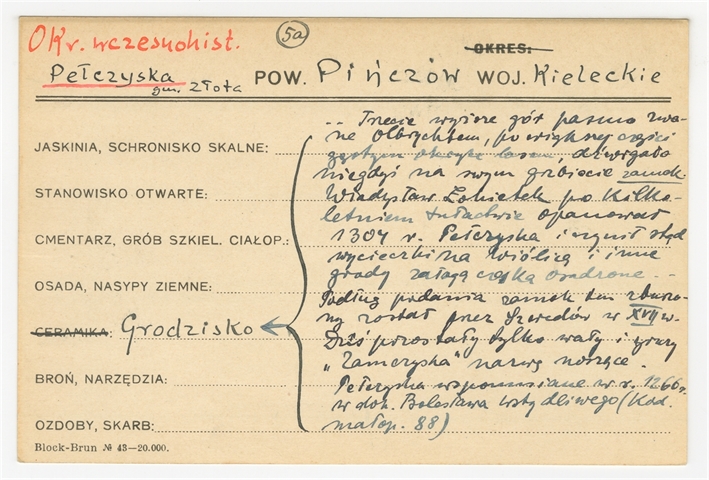 OKr. wczesnohist.
5a
OKRES:
Pełczyska
gm. Złota
POW. Pińczów WOJ. Kieleckie
JASKINIA, SCHRONISKO SKALNE:
STANOWISKO OTWARTE:
CMENTARZ, GRÓB SZKIEL. CIAŁOP.:
OSADA, NASYPY ZIEMNE:
CERAMIKA: Grodzisko
BROŃ, NARZĘDZIA:
OZDOBY, SKARB:
Block-Brun № 43—20.000.
-- Trzecie wyższe gór pasmo zwa-
ne Olbrychtem, po większej części
gęstym okryte lasem, dźwigało
niegdyś na swym grzbiecie zamek.
Władysław Łokietek po kilko-
letniem tułactwie opanował
1304 r. Pełczyska i czynił stąd
wycieczki na Wiślicę i inne
grody załogą czeską osadzone. --
Podług podania zamek ten zburzo-
ny został przez Szwedów w XVII w.
Dziś pozostały tylko wały i gruzy
"Zamczyska" nazwę noszące.
Pełczyska wspomniane w r. 1266
w dok. Bolesława Wstydliwego (Kod.
małop. 88)